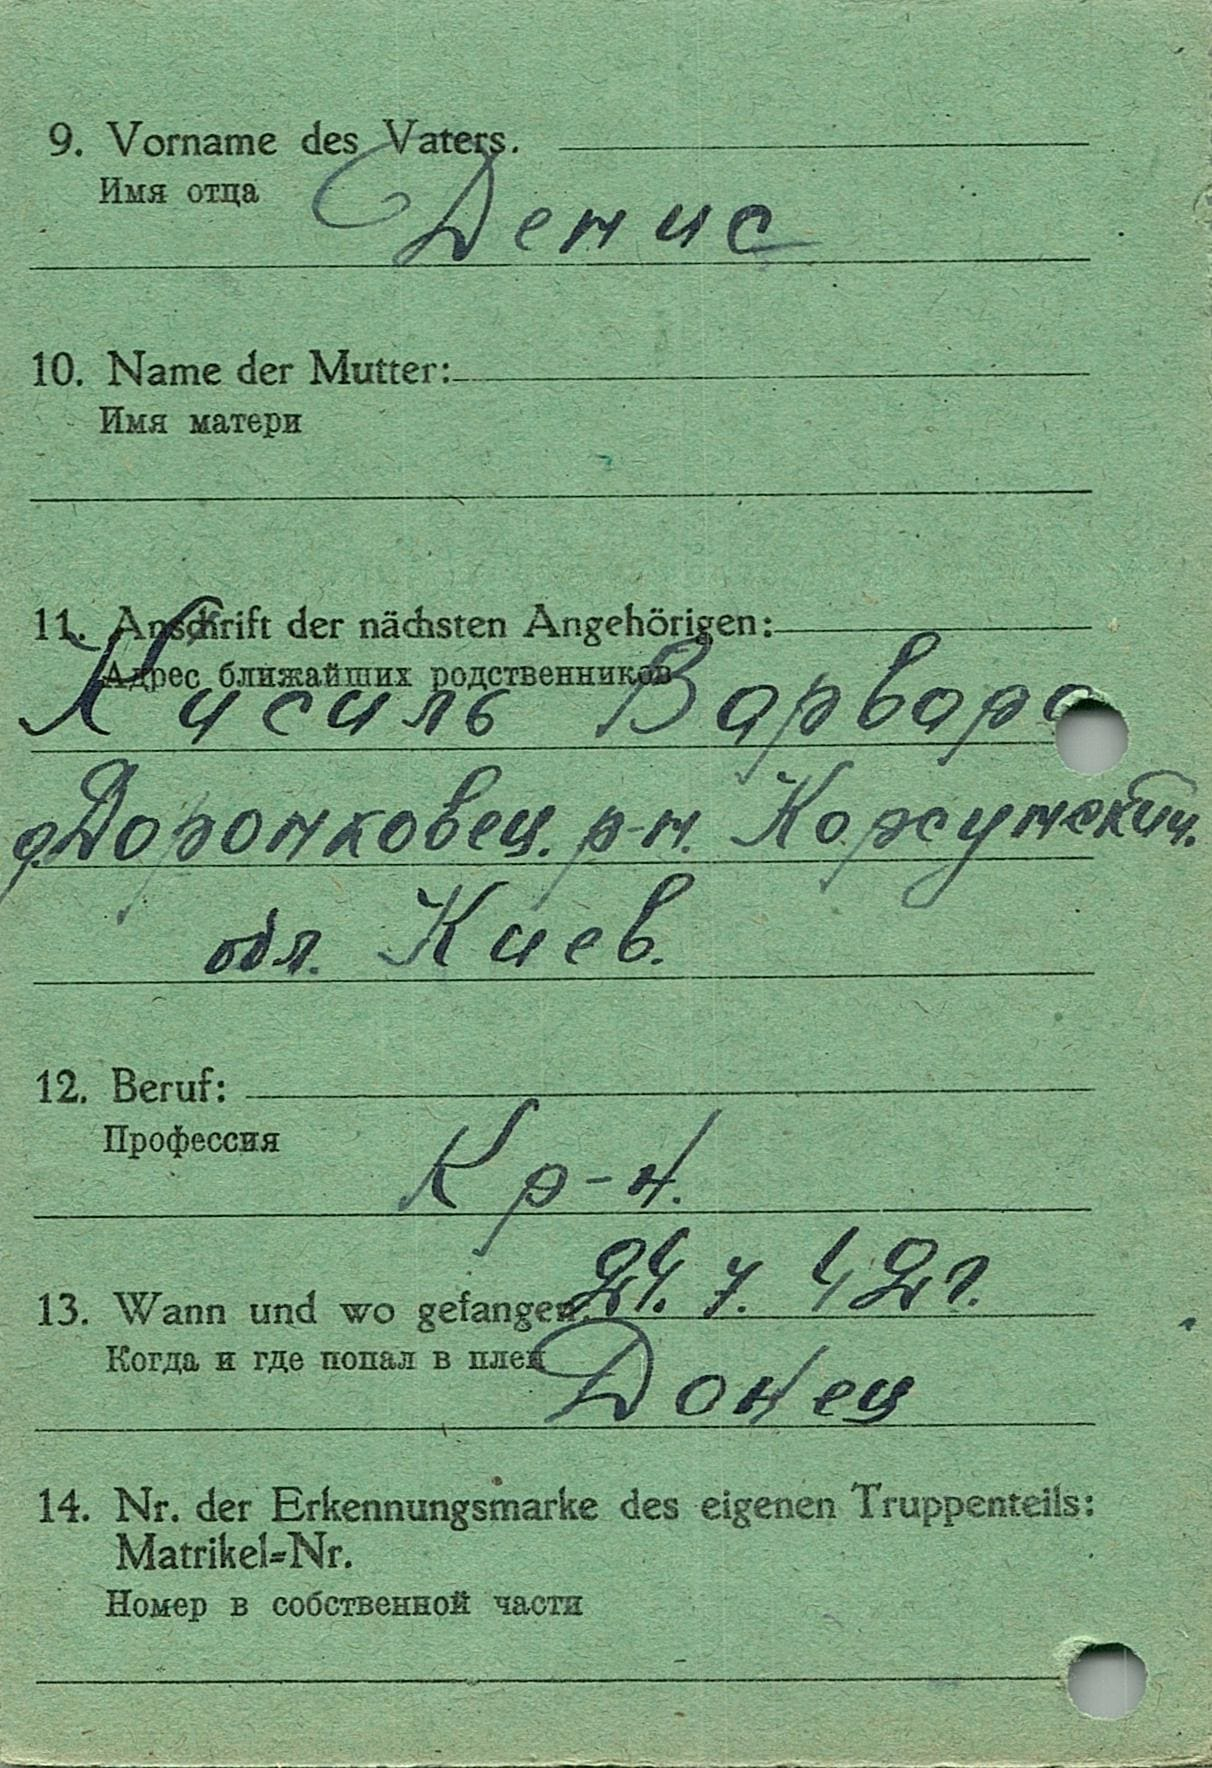 9. Vorname des Vaters.
Имя отца
Денис
10. Name der Mutter:
Имя матери
11. Anschrift der nächsten Angehörigen:
Адрес ближайших родственников
Кисиль Варвара
д. Доронковец. р-н. Корсунский.
обл. Киев.
12. Beruf:
Профессия
Кр-н.
13. Wann und wo gefangen: 24. 7. 42 г.
Когда и где попал в плен
Донец
14. Nr. der Erkennungsmarke des eigenen Truppenteils:
Matrikel=Nr.
Номер в собственной части